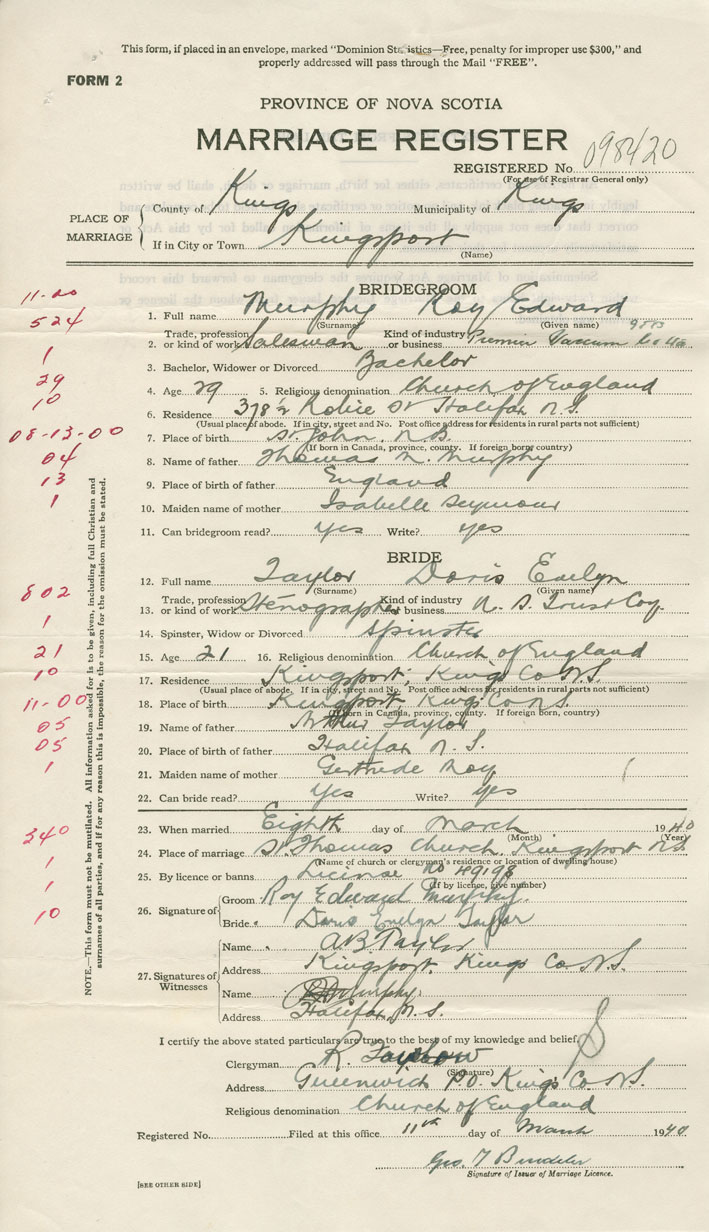 This form, if placed in an envelope, marked "Dominion Statistics—Free, penalty for improper use $300," and
properly addressed will pass through the Mail "FREE".
FORM 2
PROVINCE OF NOVA SCOTIA
MARRIAGE REGISTER
REGISTERED No. 098420
(For use of Registrar General only)
PLACE OF MARRIAGE
County of Kings Municipality of Kings
If in City or Town Kingsport
(Name)
BRIDEGROOM
11-00
1. Full name Murphy Roy Edward
(Surname) (Given name)
524
Trade, profession Kind of industry
2. or kind of work Salesman or business Premier Vacuum
1
3. Bachelor, Widower or Divorced Bachelor
29
4. Age 29 5. Religious denomination Church of England
10
6. Residence 378½ Robie St Halifax N.S.
(Usual place of abode. If in city, street and No. Post office address for residents in rural parts not sufficient)
08-13-00
7. Place of birth St. John, N.B.
(If born in Canada, province, county. If foreign born, country)
04
8. Name of father Thomas M. Murphy
13
9. Place of birth of father England
1
10. Maiden name of mother Isabelle Seymour
11. Can bridegroom read? yes Write? yes
BRIDE
12. Full name Taylor Doris Evelyn
(Surname) (Given name)
802
Trade, profession Kind of industry
13. or kind of work Stenographer or business N. S. Trust Coy.
1
14. Spinster, Widow or Divorced Spinster
21
15. Age 21 16. Religious denomination Church of England
10
17. Residence Kingsport, Kings Co N.S.
(Usual place of abode. If in city, street and No. Post office address for residents in rural parts not sufficient)
11-00
18. Place of birth Kingsport, Kings Co N.S.
(If born in Canada, province, county. If foreign born, country)
05
19. Name of father Arthur Taylor
05
20. Place of birth of father Halifax N.S.
1
21. Maiden name of mother Gertrude Roy
22. Can bride read? yes Write? yes
23. When married Eighth day of March 1940
(Month) (Year)
340
24. Place of marriage St. Thomas Church, Kingsport N.S.
(Name of church or clergyman's residence or location of dwelling house)
1
25. By licence or banns License No 49198
(If by licence, give number)
1
26. Signature of
Groom Roy Edward Murphy.
10
Bride Doris Evelyn Taylor
27. Signatures of Witnesses
Name A B Taylor
Address Kingsport, Kings Co. N.S.
Name Murphy
Address Halifax, N.S.
I certify the above stated particulars are true to the best of my knowledge and belief,
Clergyman R.
(Signature)
Address Greenwich P.O. Kings Co. N.S.
Religious denomination Church of England
Registered No. Filed at this office 11th day of March 1940
Geo. T
Signature of Issuer of Marriage Licence.
[SEE OTHER SIDE]
NOTE.—This form must not be mutilated. All information asked for is to be given, including full Christian and
surnames of all parties, and if for any reason this is impossible, the reason for the omission must be stated.